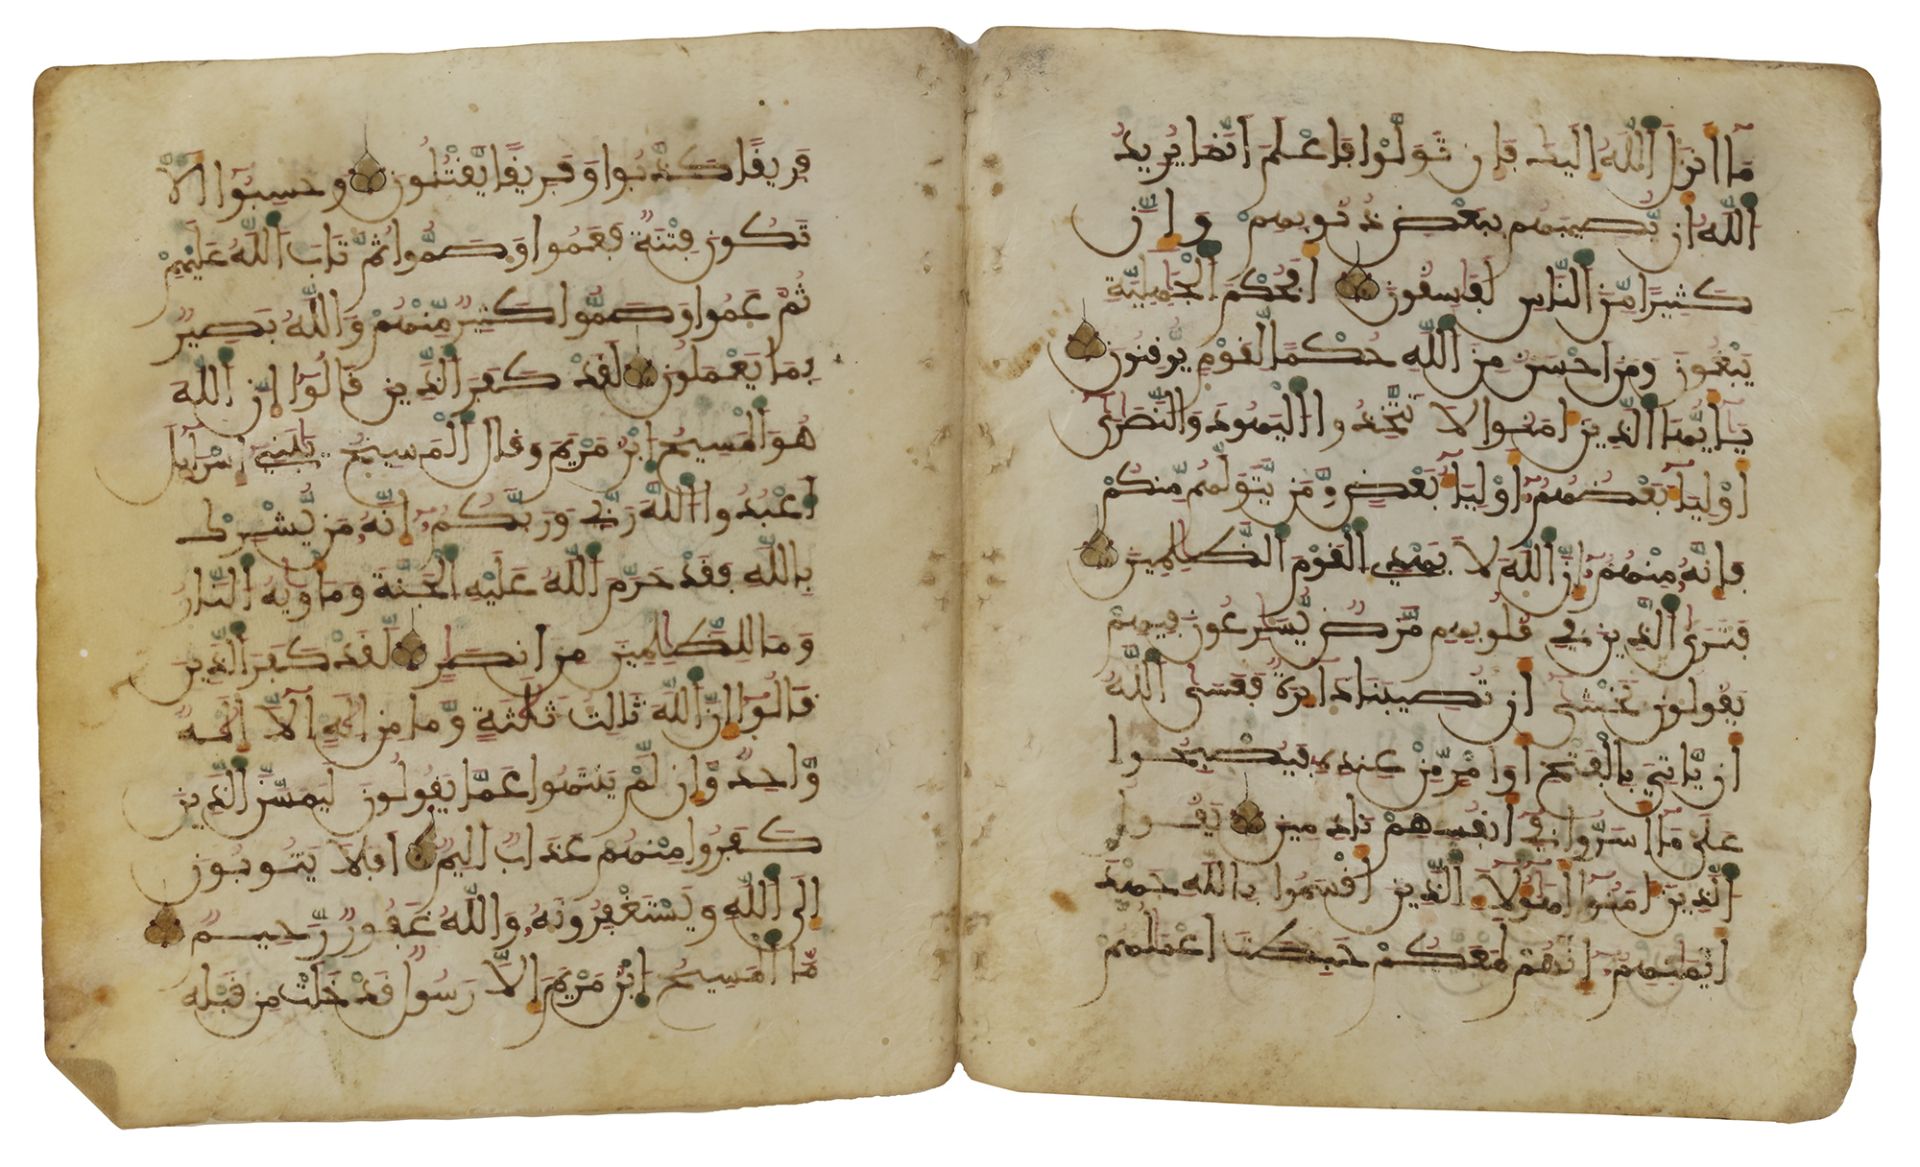 مَا أَنزَلَ اللَّهُ إِلَيْكَ فَإِن تَوَلَّوْا فَاعْلَمَ انَّمَا يُرِيدُ
اللَّهُ أَنْ يُّصِيبَهُم بِبَعْضِ ذُنُوبِهِمْ وَإِنَّ
كَثِيرًا مِّنَ النَّاسِ لَفَاسِقُونَ أَفَحُكْمَ الْجَاهِلِيَّةِ
يَبْغُونَ وَمَنَ احْسَنُ مِنَ اللَّهِ حُكْمًا لِّقَوْمٍ يُّوقِنُونَ
يَا أَيُّهَا الَّذِينَ ءَامَنُوا لَا تَتَّخِذُوا الْيَهُودَ وَالنَّصَارَى
أَوْلِيَاءَ بَعْضُهُمُ أَوْلِيَاءُ بَعْضٍ وَّمَنْ يَّتَوَلَّهُم مِّنكُمْ
فَإِنَّهُ مِنْهُمُ إِنَّ اللَّهَ لَا يَهْدِي الْقَوْمَ الظَّالِمِينَ
فَتَرَى الَّذِينَ فِي قُلُوبِهِم مَّرَضٌ يُّسَارِعُونَ فِيهِمْ
يَقُولُونَ نَخْشَى أَن تُصِيبَنَا دَائِرَةٌ فَعَسَى اللَّهُ
أَنْ يَّاتِيَ بِالْفَتْحِ أَوَ امْرٍ مِّنْ عِندِهِ فَيُصْبِحُوا
عَلَى مَا أَسَرُّوا فِي أَنفُسِهِمْ نَادِمِينَ يَقُولُ
الَّذِينَ ءَامَنُوا أَهَؤُلَاءِ الَّذِينَ أَقْسَمُوا بِاللَّهِ جَهْدَ
أَيْمَانِهِمُ إِنَّهُمْ لَمَعَكُمْ حَبِطَتَ اعْمَالُهُمْ
فَرِيقًا كَذَّبُوا وَفَرِيقًا يَّقْتُلُونَ وَحَسِبُوا أَلَّا
تَكُونَ فِتْنَةٌ فَعَمُوا وَصَمُّوا ثُمَّ تَابَ اللَّهُ عَلَيْهِمْ
ثُمَّ عَمُوا وَصَمُّوا كَثِيرٌ مِّنْهُمْ وَاللَّهُ بَصِيرٌ
بِمَا يَعْمَلُونَ لَقَدْ كَفَرَ الَّذِينَ قَالُوا إِنَّ اللَّهَ
هُوَ الْمَسِيحُ ابْنُ مَرْيَمَ وَقَالَ الْمَسِيحُ يَابَنِي إِسْرَائِيلَ
اعْبُدُوا اللَّهَ رَبِّي وَرَبَّكُمُ إِنَّهُ مَنْ يُّشْرِكْ
بِاللَّهِ فَقَدْ حَرَّمَ اللَّهُ عَلَيْهِ الْجَنَّةَ وَمَاوَاهُ النَّارُ
وَمَا لِلظَّالِمِينَ مِنَ انصَارٍ لَّقَدْ كَفَرَ الَّذِينَ
قَالُوا إِنَّ اللَّهَ ثَالِثُ ثَلَاثَةٍ وَّمَا مِنِ الَهٍ إِلَّا إِلَهٌ
وَّاحِدٌ وَّإِن لَّمْ يَنتَهُوا عَمَّا يَقُولُونَ لَيَمَسَّنَّ الَّذِينَ
كَفَرُوا مِنْهُمْ عَذَابٌ الِيمٌ أَفَلَا يَتُوبُونَ
إِلَى اللَّهِ وَيَسْتَغْفِرُونَهُ وَاللَّهُ غَفُورٌ رَّحِيمٌ
مَّا الْمَسِيحُ ابْنُ مَرْيَمَ إِلَّا رَسُولٌ قَدْ خَلَتْ مِن قَبْلِهِ